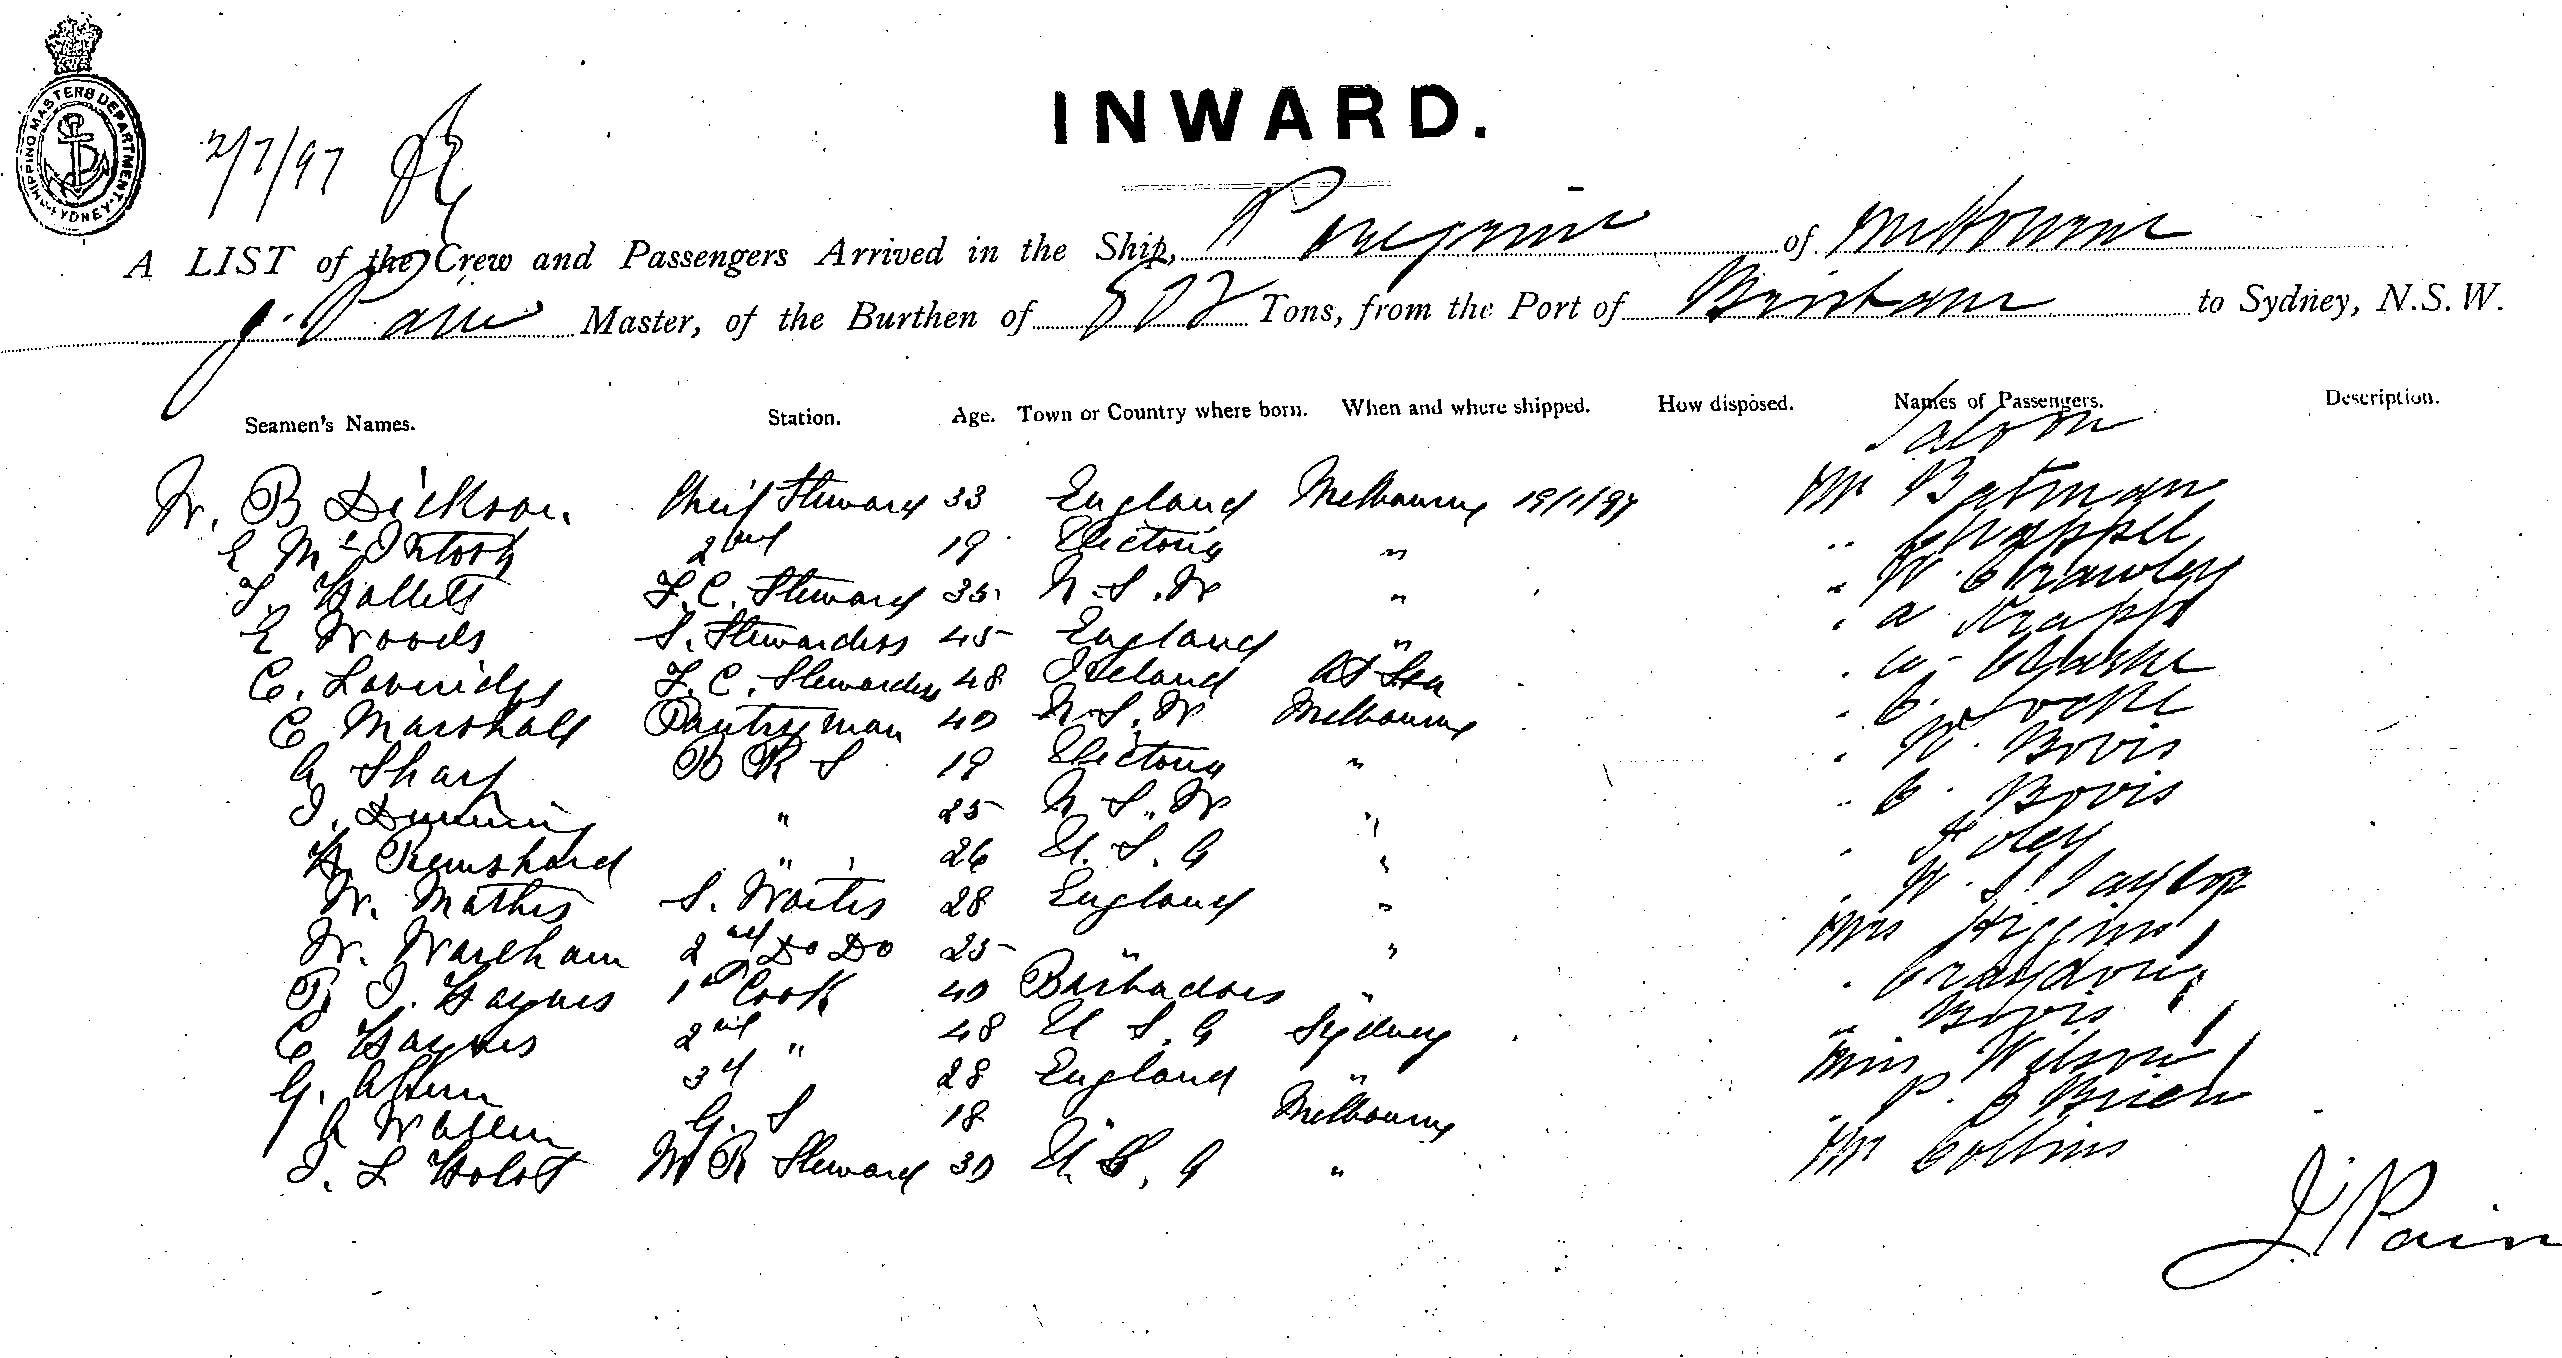 SHIPPING MASTERS DEPARTMENT. SYDNEY.
2/7/97
INWARD.
A LIST of the Crew and Passengers Arrived in the Ship, Peregrine of Melbourne
J. Pain Master, of the Burthen of Tons, from the Port of Brisbane to Sydney, N.S.W.
Seamen's Names. Station. Age. Town or Country where born. When and where shipped. How disposed. Names of Passengers. Description.
Saloon
W. B Dickson. Cheif Steward 33 England Melbourne 19/1/97 Mr Batman
E McIntosh 2nd 19 Victoria " " Chappel
T. Hallett F.C. Steward 35 N.S.W " " W. Crawley
E Woods S. Stewardess 45 England " " A
C. Loveridge F.C. Stewardess 48 Ireland At Sea " Clarke
C Marshall Pantryman 40 N.S.W Melbourne " C. Locke
A Sharp B R S 19 Victoria " " W. Bovis
J. Dunning " 25 N.S.W " " C. Bovis
H. " 26 U.S.A " " Foley
W. Mathis S. Waiter 28 England " " W. S. Taylor
W. Wareham 2nd Do Do 25 " " Mrs Higgins
B J. Haynes 1st Cook 40 Barbadoes " "
C Haynes 2nd " 48 U.S.A Sydney " Bovis
G. 3d " 28 England " Miss Wilson
A G. S 18 " Melbourne " P. O'Brien
J. L Holst M R Steward 30 U.S.A " Mr Collins
J. Pain